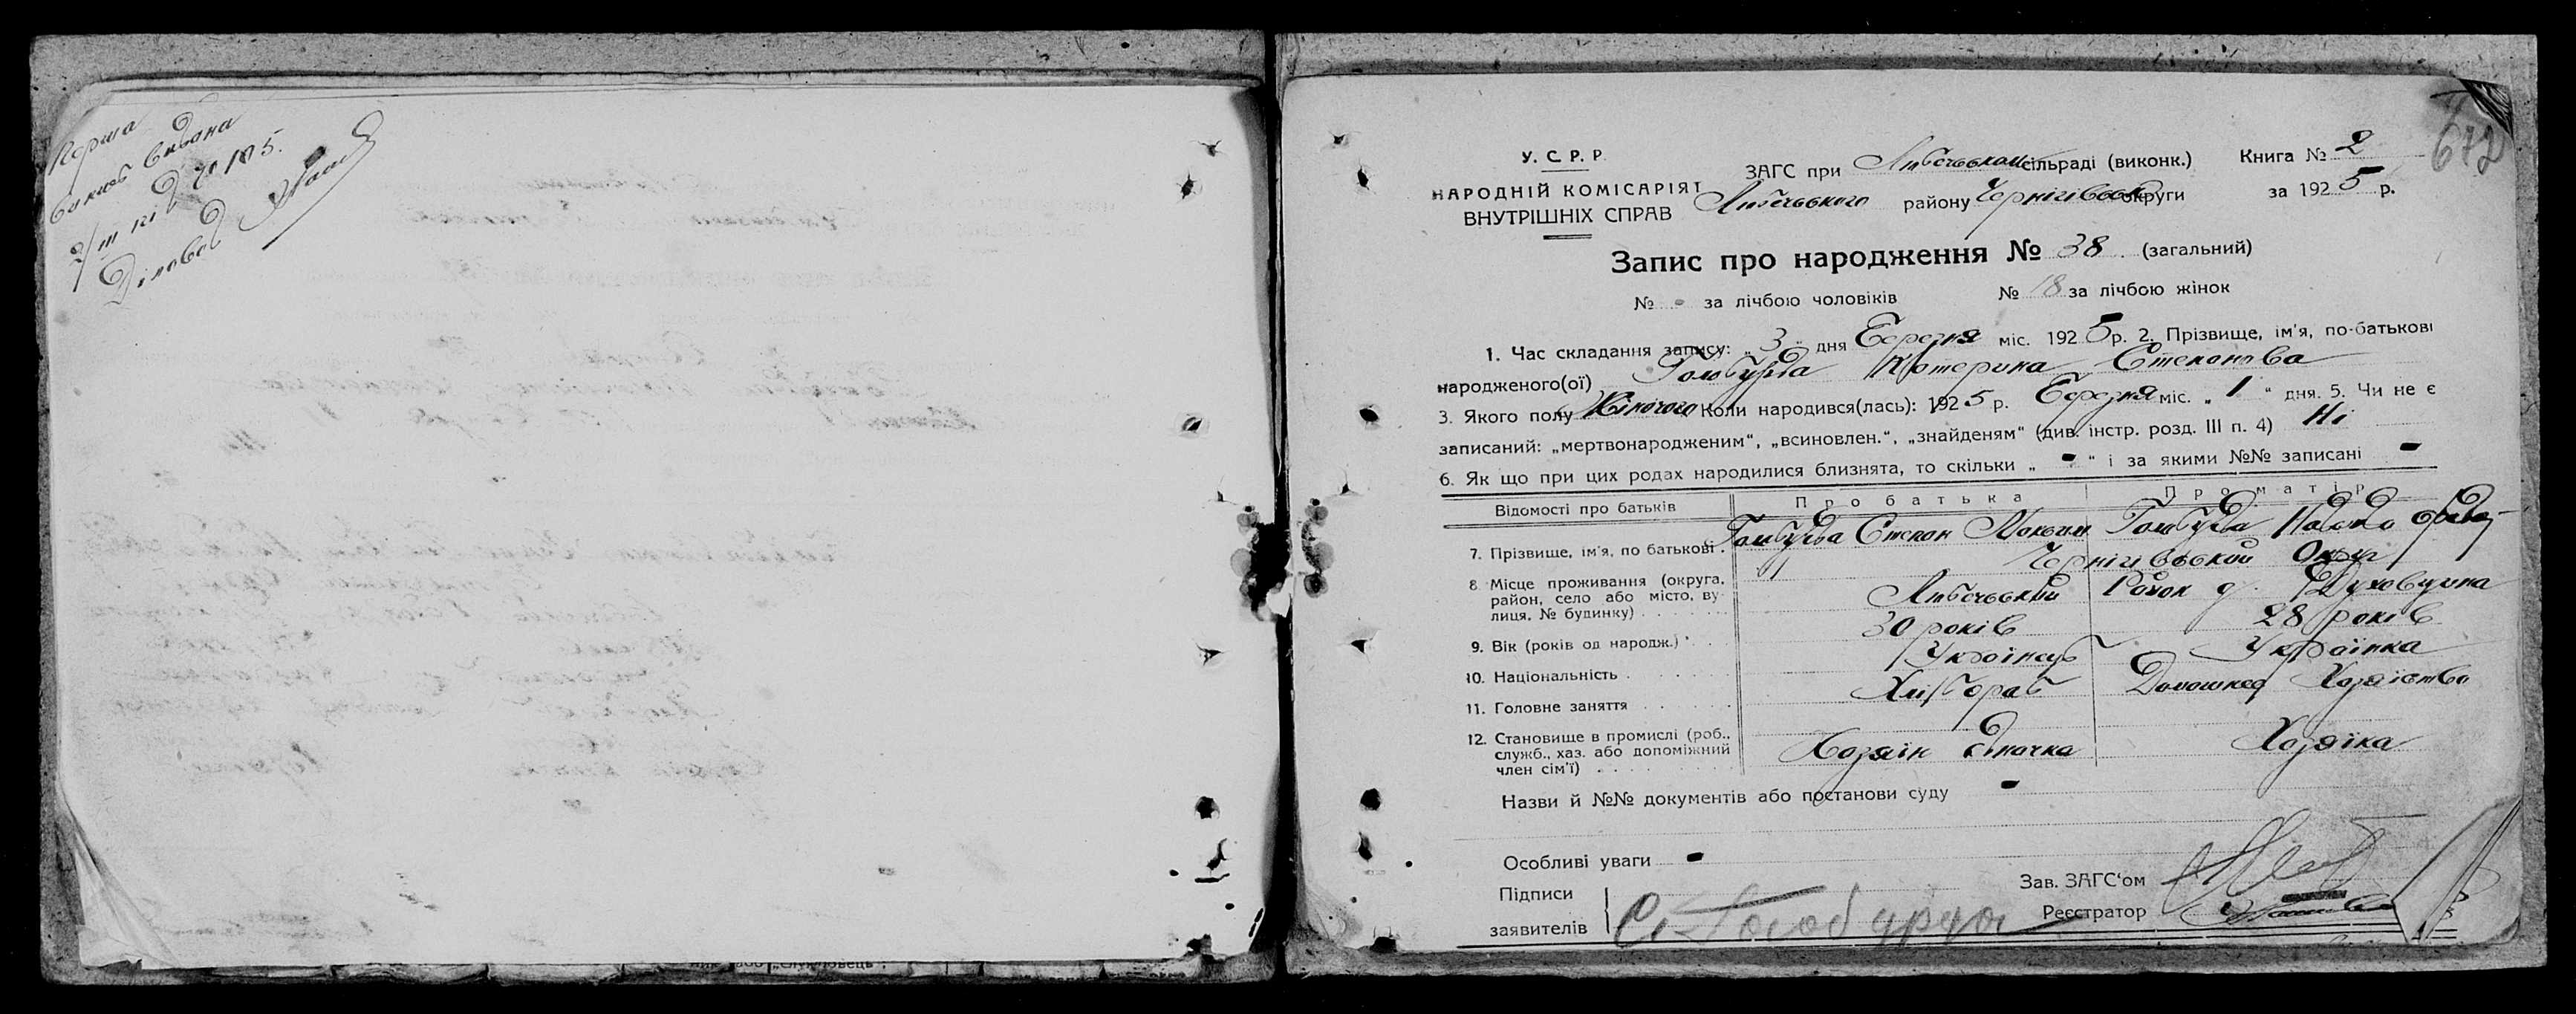 Перша
виписъ видана
2/III Д
Діловод
672
У. С. Р. Р.
НАРОДНІЙ КОМІСАРІЯТ
ВНУТРІШНІХ СПРАВ
ЗАГС при Любечськом сільраді (виконк.) Книга № 2
Любечського району Чернігівськ округи за 1925 р.
Запис про народження № 38 (загальний)
№ - за лічбою чоловіків № 18 за лічбою жінок
1. Час складання запису: „ 3 " дня Березня міс. 1925 р. 2. Прізвище, ім'я, по-батькові
народженого(ої) Голобурда Катерина Степанова
3. Якого полу Жіночого Коли народився(лась): 1925 р. Березня міс. „ 1 " дня. 5. Чи не є
записаний: „мертвонародженим", „всиновлен.", „знайденям" (див. інстр. розд. III п. 4) Ні
6. Як що при цих родах народилися близнята, то скільки „ - " і за якими №№ записані -
Відомості про батьків Про батька Про матір
7. Прізвище, ім'я, по батькові . Голобурда Степан Голобурда
Чернігівський Округ
8 Місце проживання (округа,
район, село або місто, ву-
лиця, № будинку) . . . Любечський Район д. Духовщина
9. Вік (років од народж.) . . . 30 років 28 років
10. Національність . . . Українець Українка
11. Головне заняття . . . Хлібороб Домошнєє Хозяіство
12. Становище в промислі (роб.,
служб., хаз. або допоміжний
член сім'ї) . . . Хозяін одиночка Хозяїка
Назви й №№ документів або постанови суду -
Особливі уваги -
Підписи
заявителів С. Голобурда
Зав. ЗАГС'ом
Реєстратор